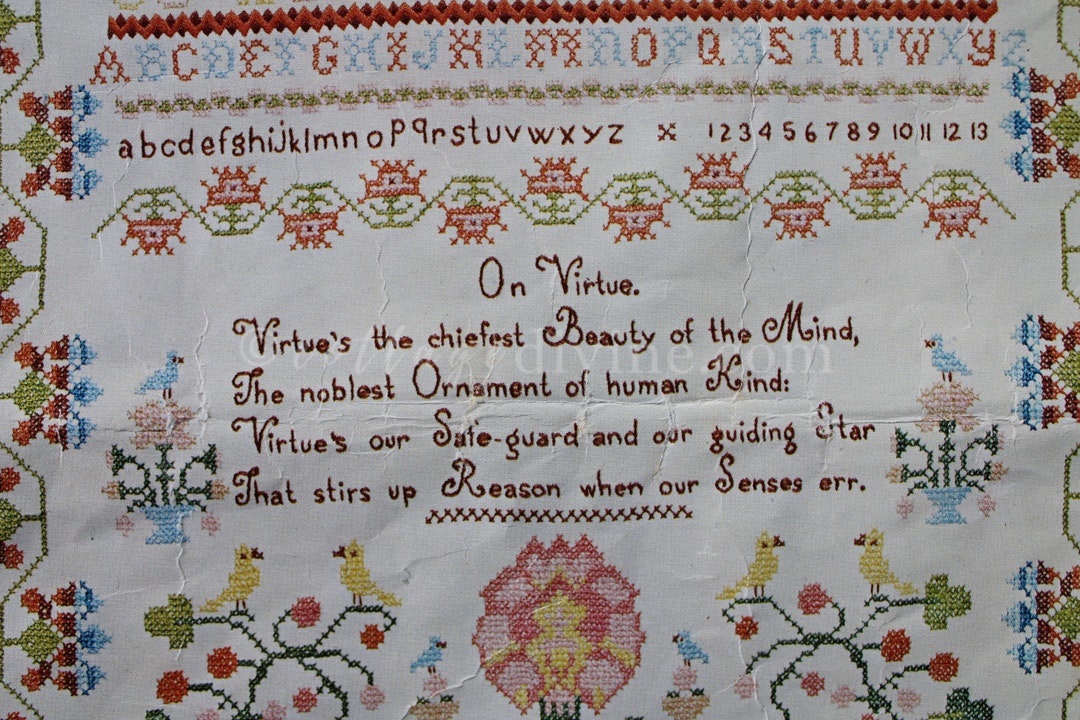 ABCDEFGHIJKLMNOPQRSTUVWXYZ
abcdefghijklmnopqrstuvwxyz x 1 2 3 4 5 6 7 8 9 10 11 12 13
On Virtue.
Virtue's the chiefest Beauty of the Mind,
The noblest Ornament of human Kind:
Virtue's our Safe-guard and our guiding Star
That stirs up Reason when our Senses err.